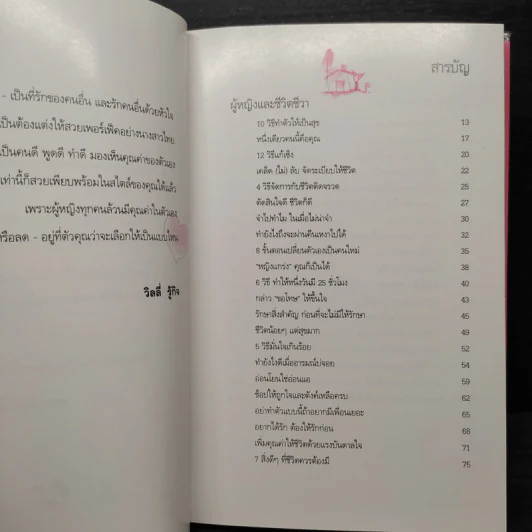 - เป็นที่รักของคนอื่น และรักคนอื่นด้วยหัวใจ
เป็นต้องแต่งให้สวยเพอร์เฟ็คอย่างนางสาวไทย
เป็นคนดี พูดดี ทำดี มองเห็นคุณค่าของตัวเอง
เท่านี้ก็สวยเพียบพร้อมในสไตล์ของคุณได้แล้ว
เพราะผู้หญิงทุกคนล้วนมีคุณค่าในตัวเอง
หรือลด - อยู่ที่ตัวคุณว่าจะเลือกให้เป็นแบบไหน
วิลลี่ รู้กิจ
สารบัญ
ผู้หญิงและชีวิตชีวา
10 วิธีทำตัวให้เป็นสุข 13
หนึ่งเดียวคนนี้คือคุณ 17
12 วิธีแก้เซ็ง 20
เคล็ด (ไม่) ลับ จัดระเบียบให้ชีวิต 22
4 วิธีจัดการกับชีวิตติดจรวด 25
ตัดสินใจดี ชีวิตก็ดี 27
จำไปทำไม ในเมื่อไม่น่าจำ 30
ทำยังไงถึงจะผ่านคืนเหงาไปได้ 32
8 ขั้นตอนเปลี่ยนตัวเองเป็นคนใหม่ 35
"หญิงแกร่ง" คุณก็เป็นได้ 38
6 วิธี ทำให้หนึ่งวันมี 25 ชั่วโมง 40
กล่าว "ขอโทษ" ให้ขึ้นใจ 43
รักษาสิ่งสำคัญ ก่อนที่จะไม่มีให้รักษา 45
ชีวิตน้อยๆ แต่สุขมาก 49
5 วิธีมั่นใจเกินร้อย 52
ทำยังไงดีเมื่ออารมณ์บ่จอย 54
อ่อนโยนใช่อ่อนแอ 59
ช้อปให้ถูกใจและตังค์เหลือครบ 62
อย่าทำตัวแบบนี้ถ้าอยากมีเพื่อนเยอะ 65
อยากได้รัก ต้องให้รักก่อน 68
เพิ่มคุณค่าให้ชีวิตด้วยแรงบันดาลใจ 71
7 สิ่งดีๆ ที่ชีวิตควรต้องมี 75